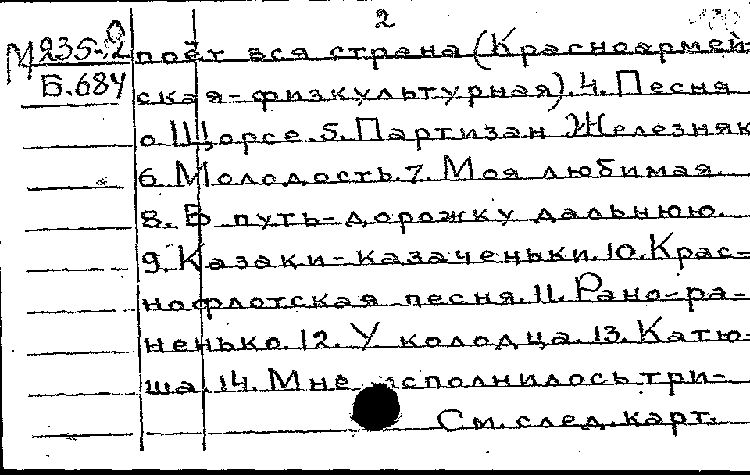 2
М 235-2 поёт вся страна (Красноармей-
Б.684 ская-физкультурная). 4. Песня
о Щорсе. 5. Партизан Железняк
6. Молодость. 7. Моя любимая.
8. В путь-дорожку дальнюю.
9. Казаки-казаченьки. 10. Крас-
нофлотская песня. 11. Рано-ра-
ненько. 12. У колодца. 13. Катю-
ша. 14. Мне исполнилось три-
См. след. карт.